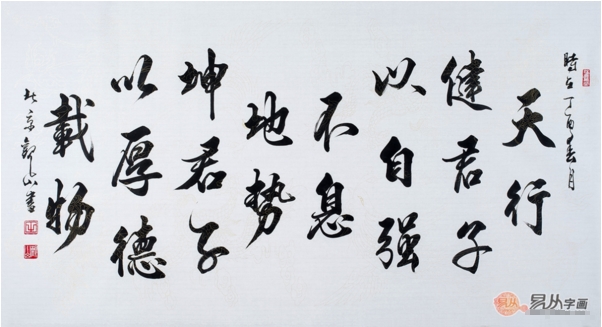 時在丁酉春月
天行
健君子
以自强
不息
地势
坤君子
以厚德
載物
北京山書
易从字画